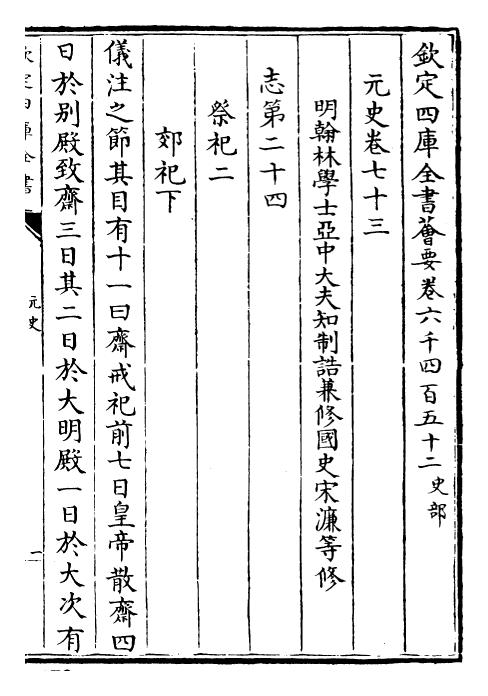 欽定四庫全書薈要卷六千四百五十二史部
元史卷七十三
明翰林學士亞中大夫知制誥兼修國史宋濂等修
志第二十四
祭祀二
郊祀下
儀注之節其目有十一曰齋戒祀前七日皇帝散齋四
日於别殿致齋三日其二日於大明殿一日於大次有
欽定四庫全書
元史